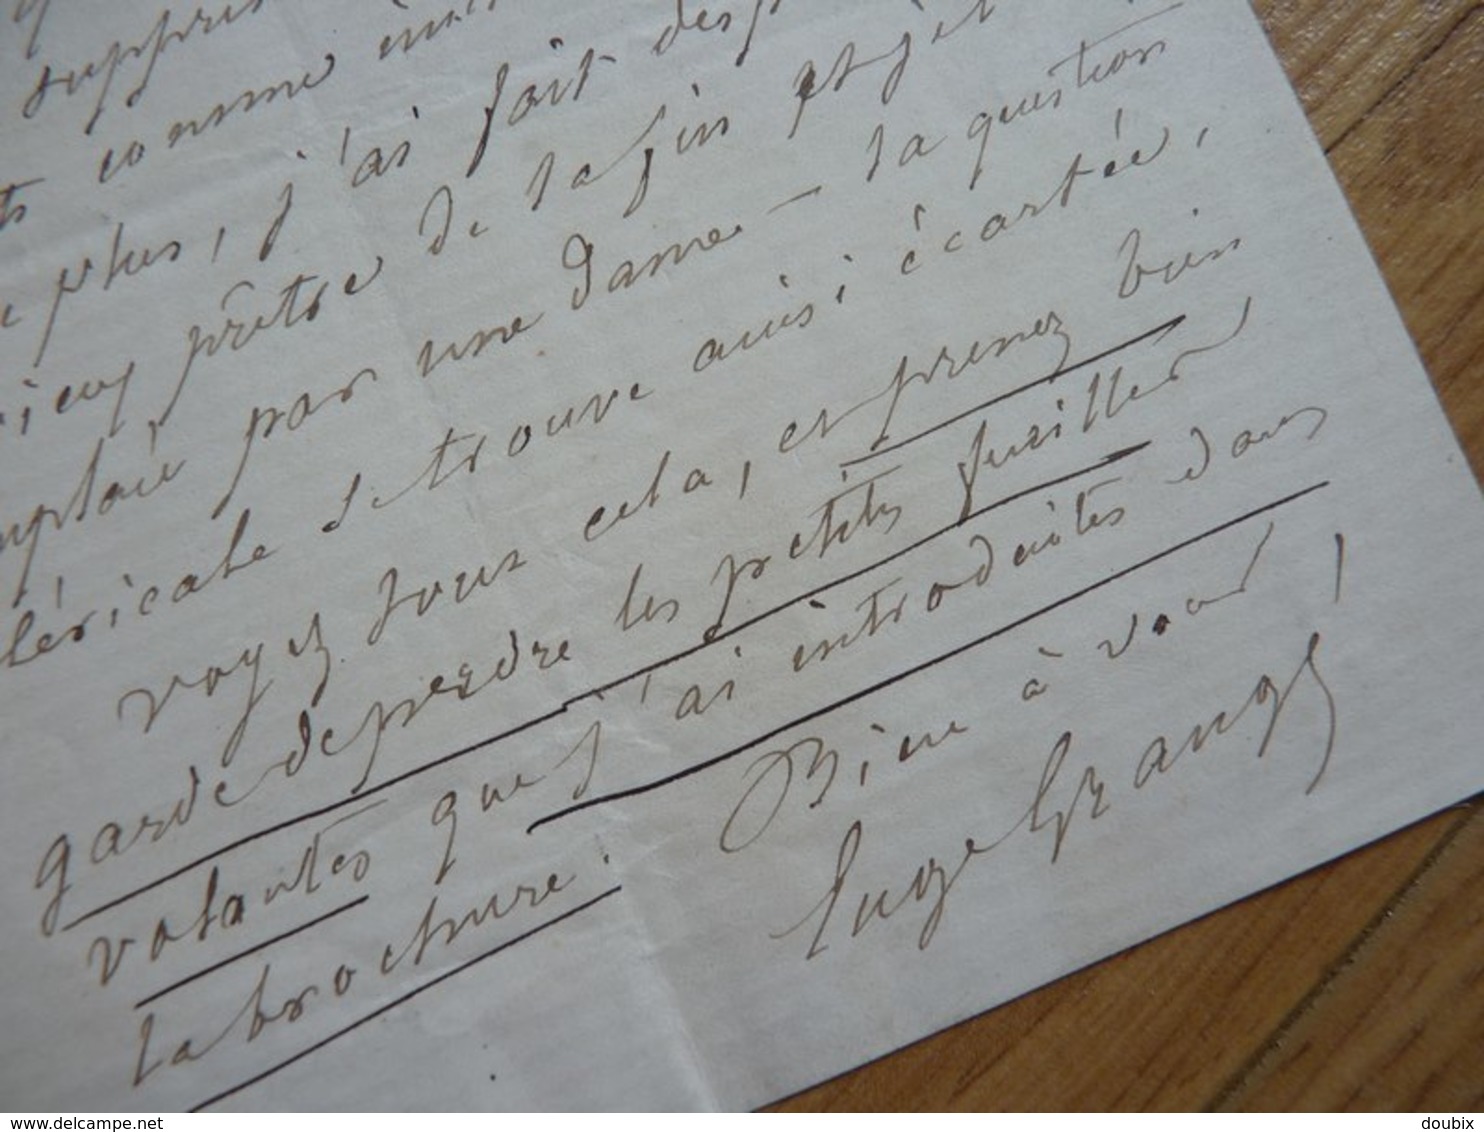 suppri
comme
plus, j'ai fait
prêtre de la fin et je
par une dame — la question
cléricale se trouve ainsi écartée,
voyez tout cela, et prenez bien
garde de perdre les petites feuilles
volantes que j'ai introduites dans
la brochure.
Bien à vous,
Eugène Grangé
www.delcampe.net
doubix